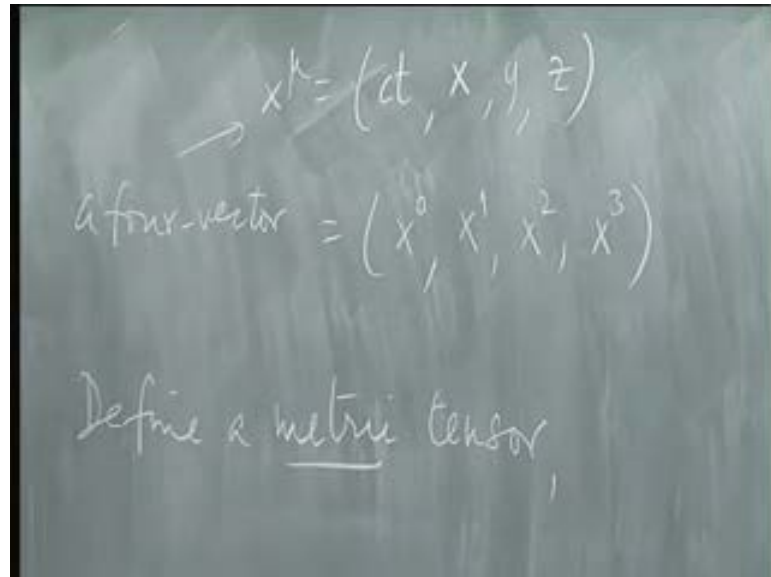 x^μ = (ct, x, y, z)
a four-vector = (x^0, x^1, x^2, x^3)
Define a metric tensor,